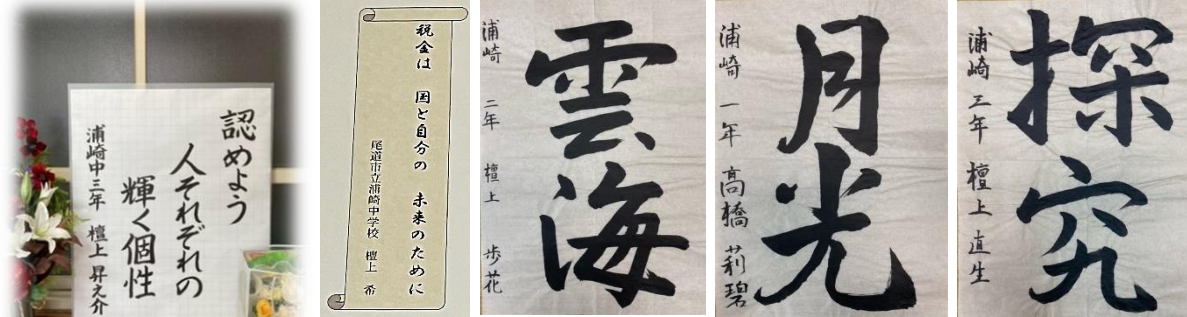 認めよう
人それぞれの
輝く個性
浦崎中三年 檀上 昇之介
税金は 国と自分の 未来のために
尾道市立浦崎中学校 檀上 希
雲海
浦崎 二年 檀上 歩花
月光
浦崎 一年 高橋 莉碧
探究
浦崎 三年 檀上 直生